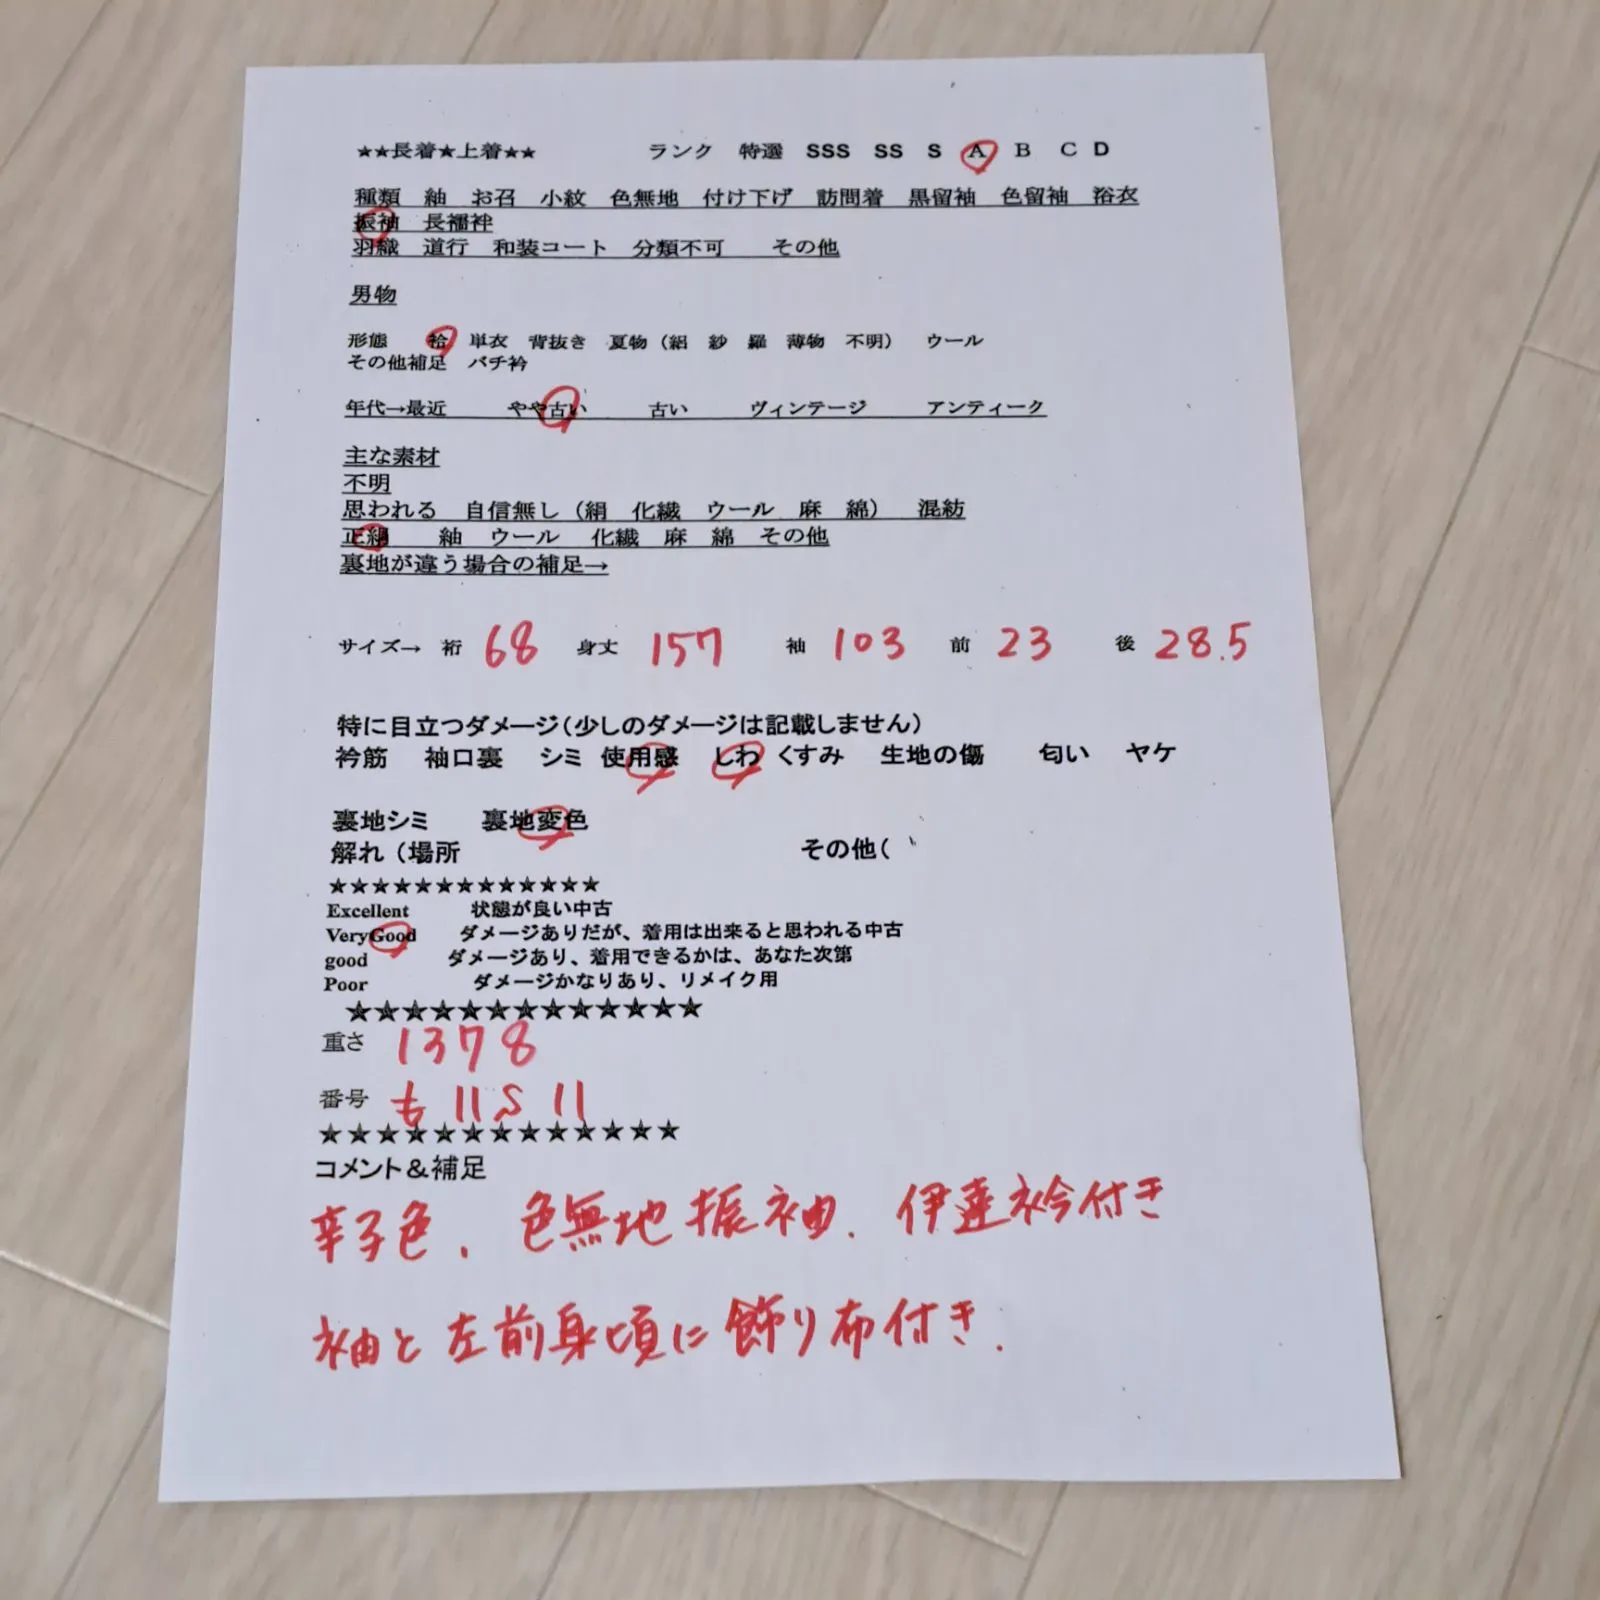 ★★長着★上着★★ ランク 特選 SSS SS S A B C D
種類 紬 お召 小紋 色無地 付け下げ 訪問着 黒留袖 色留袖 浴衣
振袖 長襦袢
羽織 道行 和装コート 分類不可 その他
男物
形態 袷 単衣 背抜き 夏物（絽 紗 羅 薄物 不明） ウール
その他補足 バチ衿
年代→最近 やや古い 古い ヴィンテージ アンティーク
主な素材
不明
思われる 自信無し（絹 化繊 ウール 麻 綿） 混紡
正絹 紬 ウール 化繊 麻 綿 その他
裏地が違う場合の補足→
サイズ→ 裄 68 身丈 157 袖 103 前 23 後 28.5
特に目立つダメージ（少しのダメージは記載しません）
衿筋 袖口裏 シミ 使用感 しわ くすみ 生地の傷 匂い ヤケ
裏地シミ 裏地変色
解れ（場所 その他（
★★★★★★★★★★★★★
Excellent 状態が良い中古
VeryGood ダメージありだが、着用は出来ると思われる中古
good ダメージあり、着用できるかは、あなた次第
Poor ダメージかなりあり、リメイク用
★★★★★★★★★★★★★
重さ 1378
番号 も11S11
★★★★★★★★★★★★★
コメント＆補足
辛子色. 色無地振袖. 伊達衿付き
袖と左前身頃に飾り布付き.